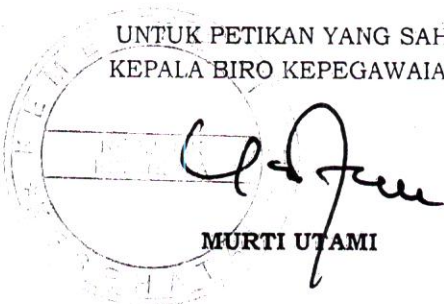 UNTUK PETIKAN YANG SAH
KEPALA BIRO KEPEGAWAIA
MURTI UTAMI